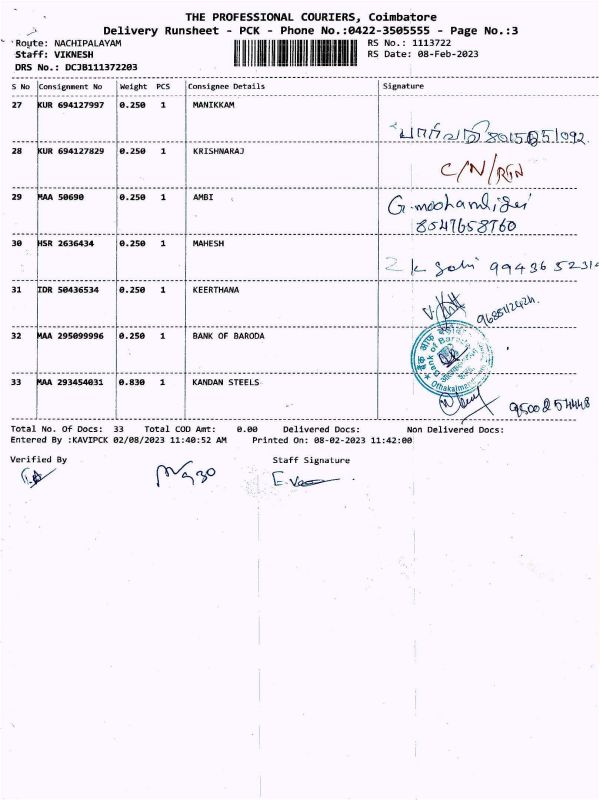 THE PROFESSIONAL COURIERS, Coimbatore
Delivery Runsheet - PCK - Phone No.:0422-3505555 - Page No.:3
Route: NACHIPALAYAM RS No.: 1113722
Staff: VIKNESH RS Date: 08-Feb-2023
DRS No.: DCJB111372203
S No Consignment No Weight PCS Consignee Details Signature
27 KUR 694127997 0.250 1 MANIKKAM
28 KUR 694127829 0.250 1 KRISHNARAJ
C/N/RTN
29 MAA 50690 0.250 1 AMBI
8547658760
30 HSR 2636434 0.250 1 MAHESH
99436 5231
31 IDR 50436534 0.250 1 KEERTHANA
32 MAA 295099996 0.250 1 BANK OF BARODA
Bank of Baroda
33 MAA 293454031 0.830 1 KANDAN STEELS
Total No. Of Docs: 33 Total COD Amt: 0.00 Delivered Docs: Non Delivered Docs:
Entered By :KAVIPCK 02/08/2023 11:40:52 AM Printed On: 08-02-2023 11:42:00
Verified By Staff Signature